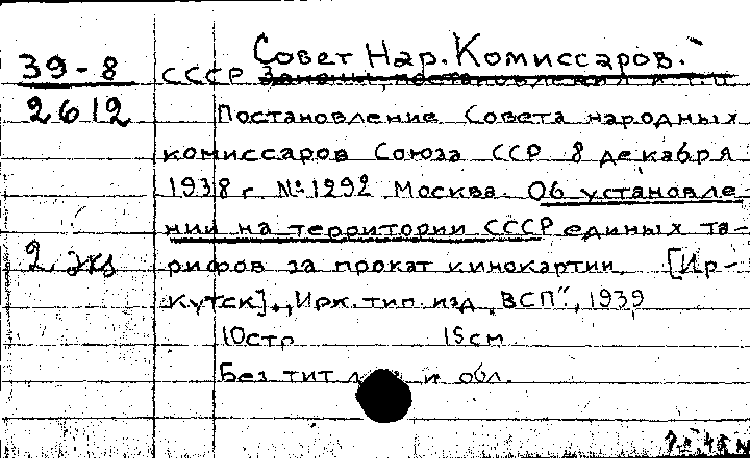 Совет Нар. Комиссаров.
39-8 СССР Законы, постановления и т.п.
2612 Постановление Совета народных
комиссаров Союза ССР 8 декабря
1938 г. №1292 Москва. Об установле-
нии на территории СССР единых та-
2 экз рифов за прокат кинокартин. [Ир-
кутск]., Ирк. тип. изд. „ВСП“, 1939
10стр 15см
Без тит и обл.